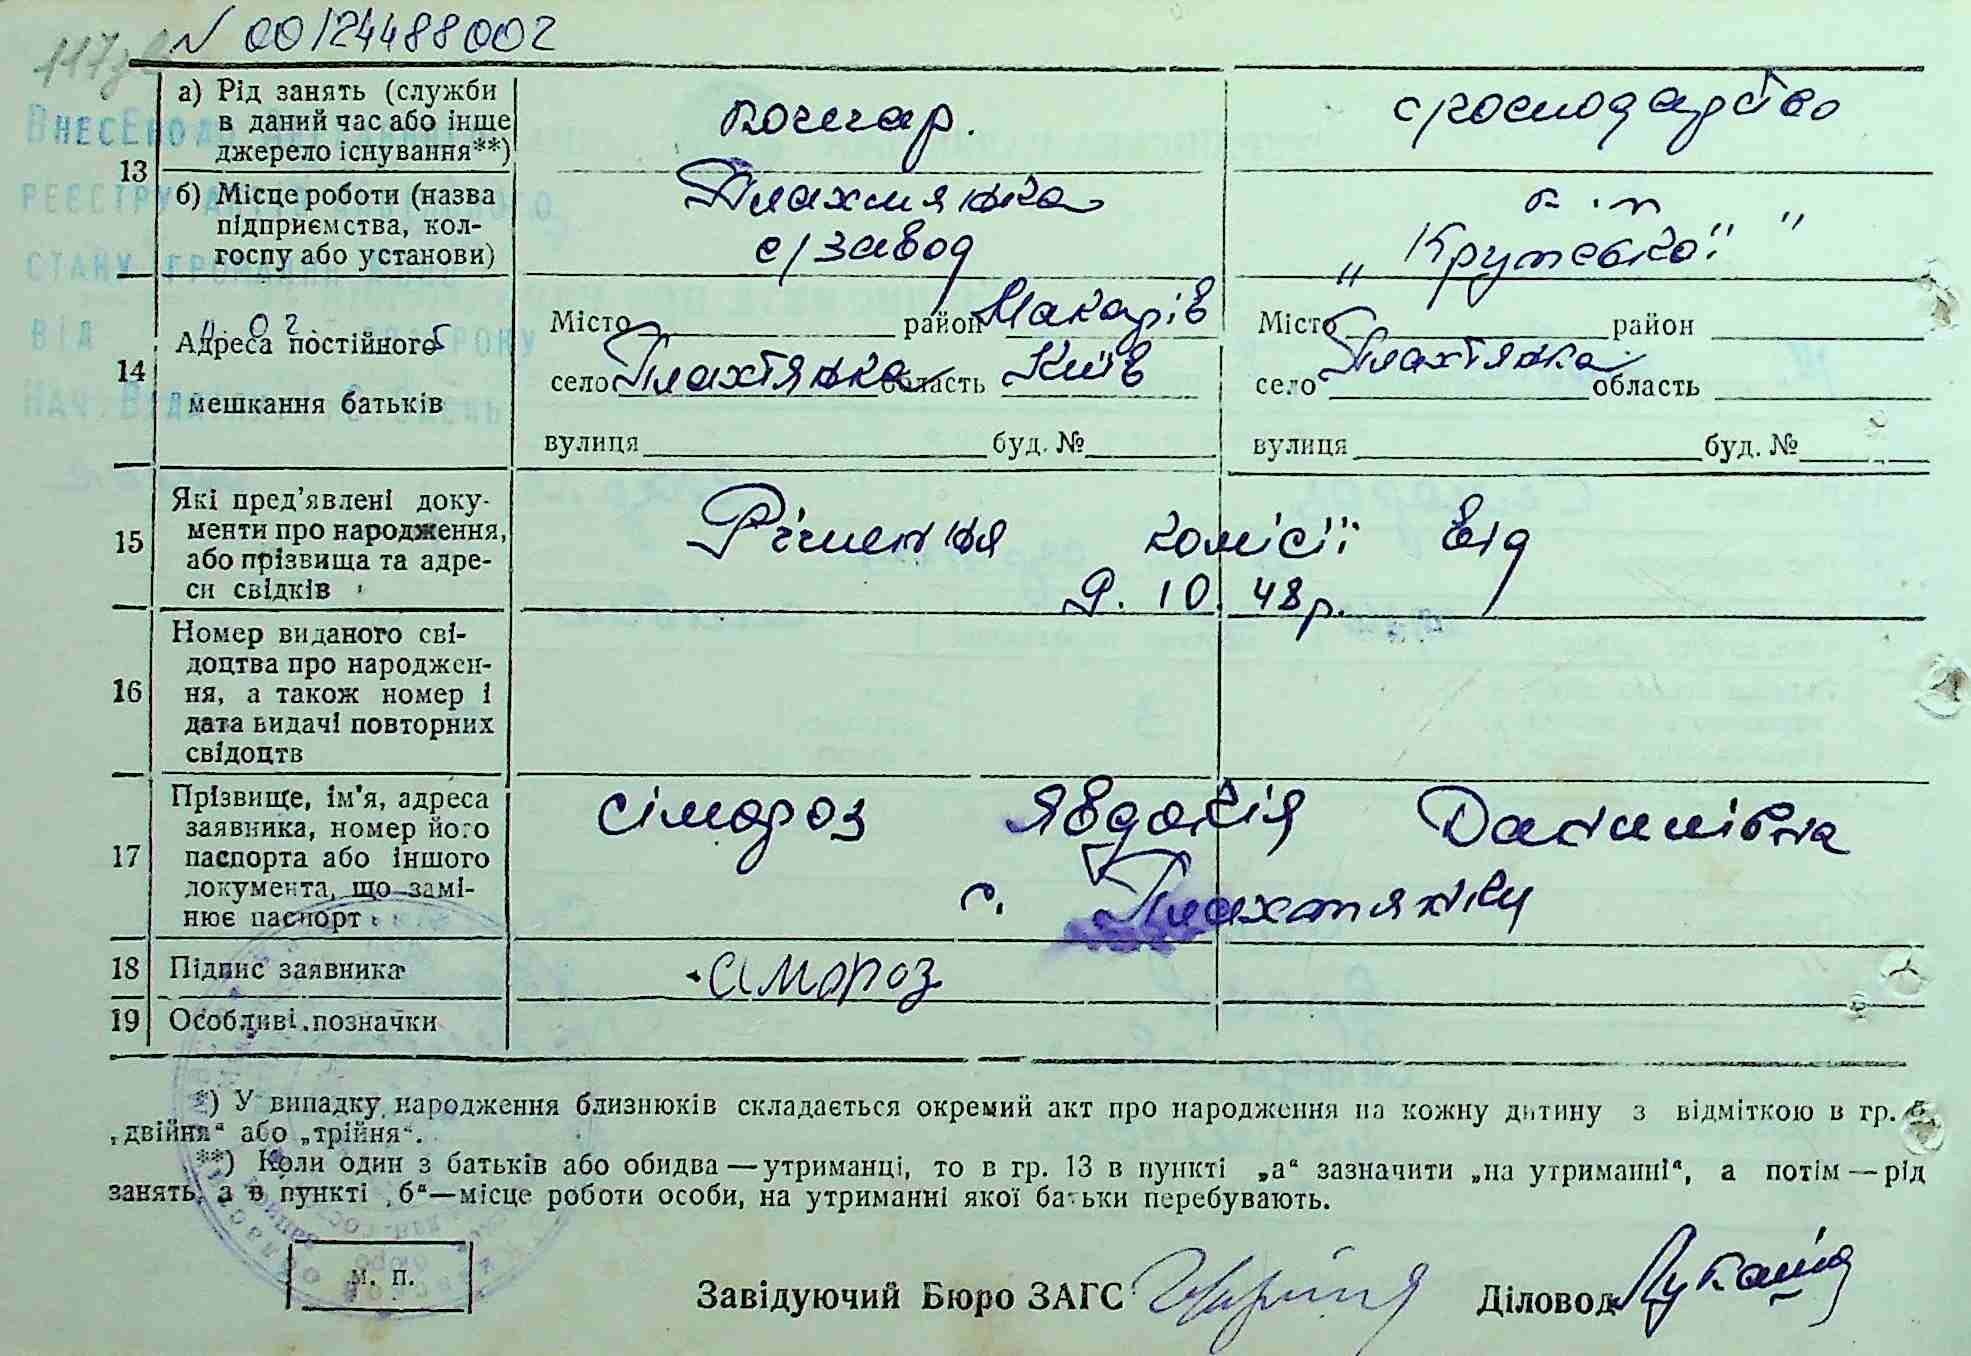 N 00124488002
13
а) Рід занять (служби
в даний час або інше
джерело існування**)
кочегар.
с/господарство
б) Місце роботи (назва
підприємства, кол-
госпу або установи)
Плахтянка
с/завод
14
Адреса постійного
мешкання батьків
Місто район Макарів
село Плахтянка область Київ
вулиця буд. №
Місто район
село Плахтянка область
вулиця буд. №
15
Які пред'явлені доку-
менти про народження,
або прізвища та адре-
си свідків
Рішення комісії від
9. 10. 48 р.
16
Номер виданого сві-
доцтва про народжен-
ня, а також номер і
дата видачі повторних
свідоцтв
17
Прізвище, ім'я, адреса
заявника, номер його
паспорта або іншого
документа, що замі-
нює паспорт
Сімороз Явдокія Данилівна
с. Плахтянку
18
Підпис заявника
Сімороз
19
Особливі позначки
*) У випадку народження близнюків складається окремий акт про народження на кожну дитину з відміткою в гр.
„двійня“ або „трійня“.
**) Коли один з батьків або обидва — утриманці, то в гр. 13 в пункті „а“ зазначити „на утриманні“, а потім — рід
занять, а в пункті „б“ — місце роботи особи, на утриманні якої батьки перебувають.
М. П.
Завідуючий Бюро ЗАГС
Діловод